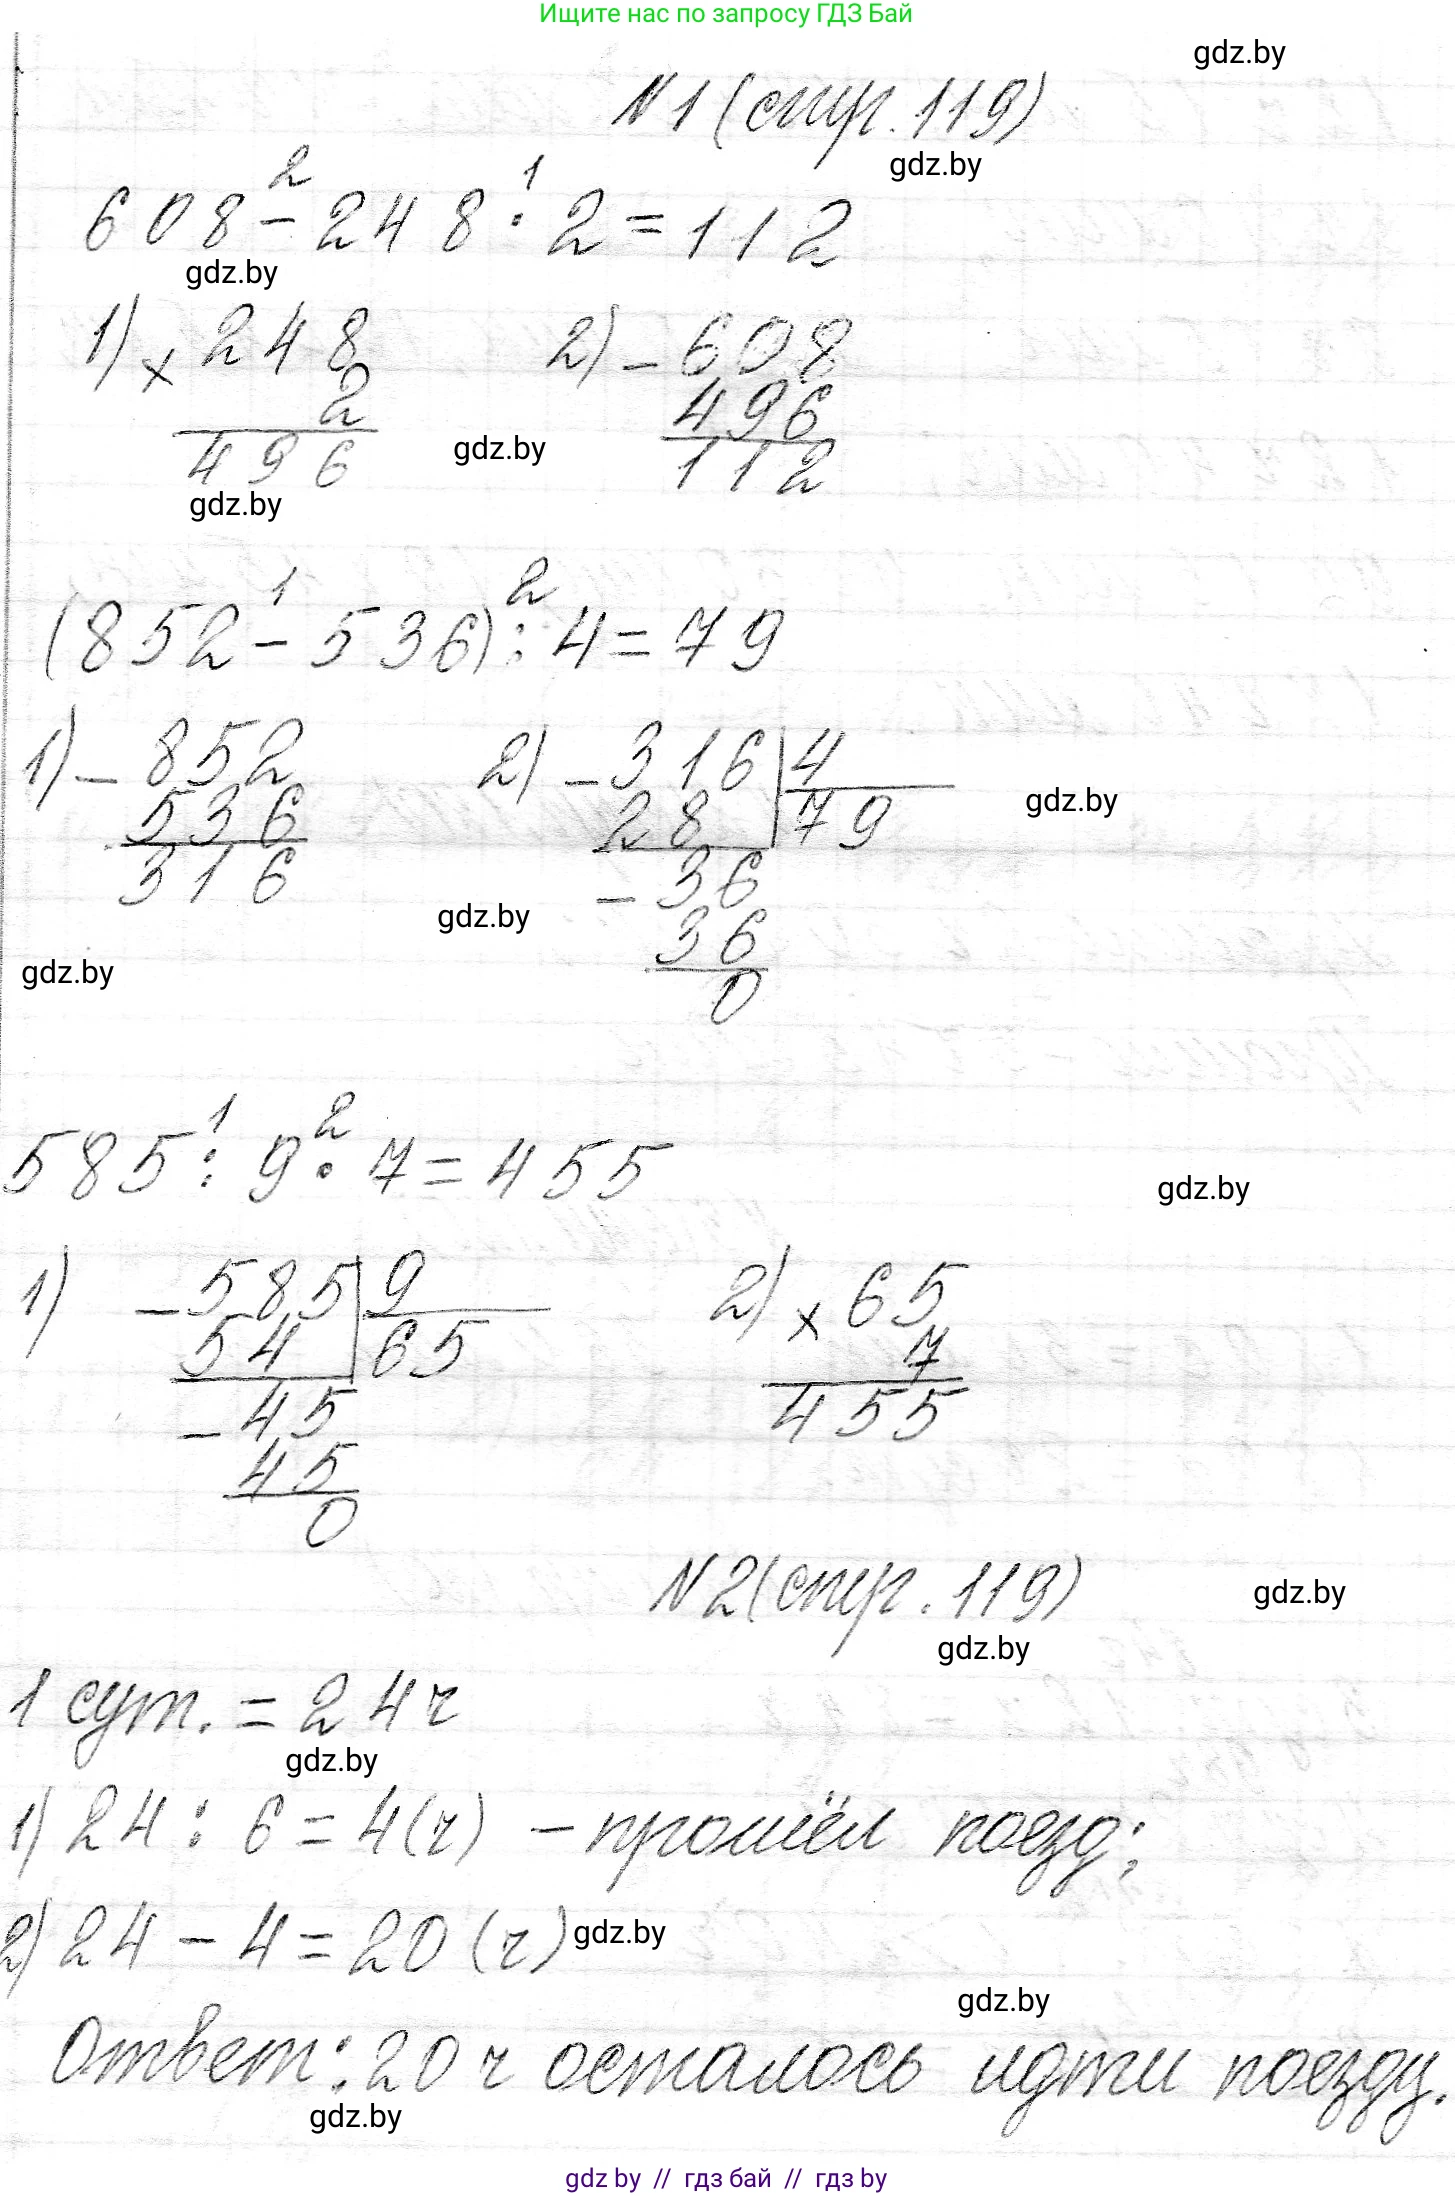 Ищите нас по запросу ГДЗ Бай
gdz.by
№1 (стр. 119)
gdz.by
2 1
608 - 248 · 2 = 112
gdz.by
1) × 248 2) - 608
2 496
496 gdz.by 112
gdz.by
1 2
(852 - 536) : 4 = 79
1) - 852 2) - 316 | 4
536 28 79 gdz.by
316 - 36
gdz.by 36
gdz.by 0
1 2
585 : 9 · 7 = 455
gdz.by
1) - 585 | 9 2) × 65
54 65 7
- 45 455
45
0
№2 (стр. 119) gdz.by
gdz.by
1 сут. = 24 ч
gdz.by
1) 24 : 6 = 4 (ч) - прошёл поезд;
2) 24 - 4 = 20 (ч) gdz.by
gdz.by
Ответ: 20 ч осталось идти поезду.
gdz.by
gdz.by // гдз бай // гдз by